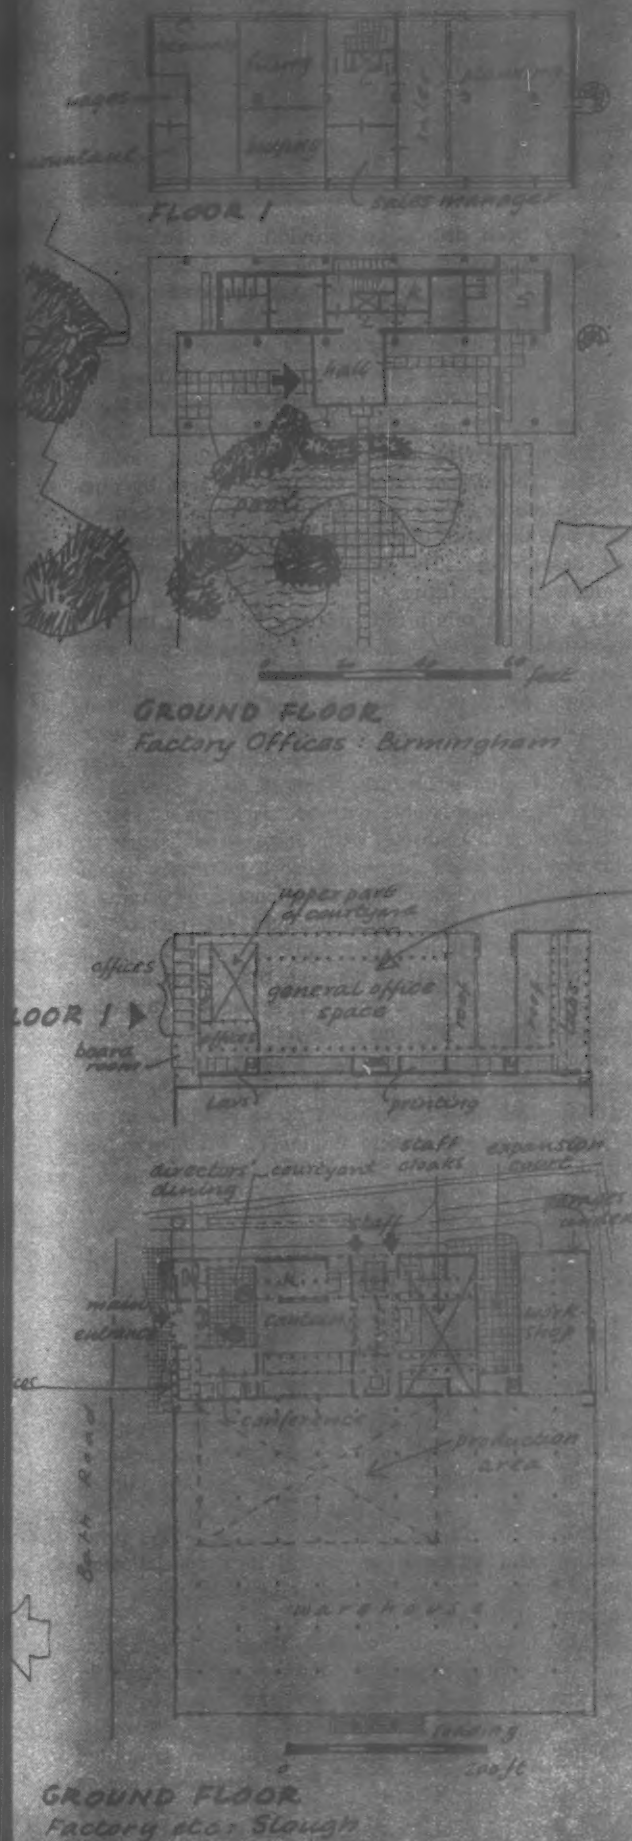 wages
buying
planning
FLOOR 1
sales manager
hall
pool
feet
GROUND FLOOR
Factory Offices : Birmingham
upper part
of courtyard
offices
general office
space
roof
roof
FLOOR 1
offices
board
room
lavs
printing
directors'
dining
courtyard
staff
cloaks
expansion
court
staff
main
entrance
canteen
work
shop
conference
production
area
Bath Road
warehouse
loading
0
200 ft
GROUND FLOOR
Factory etc: Slough